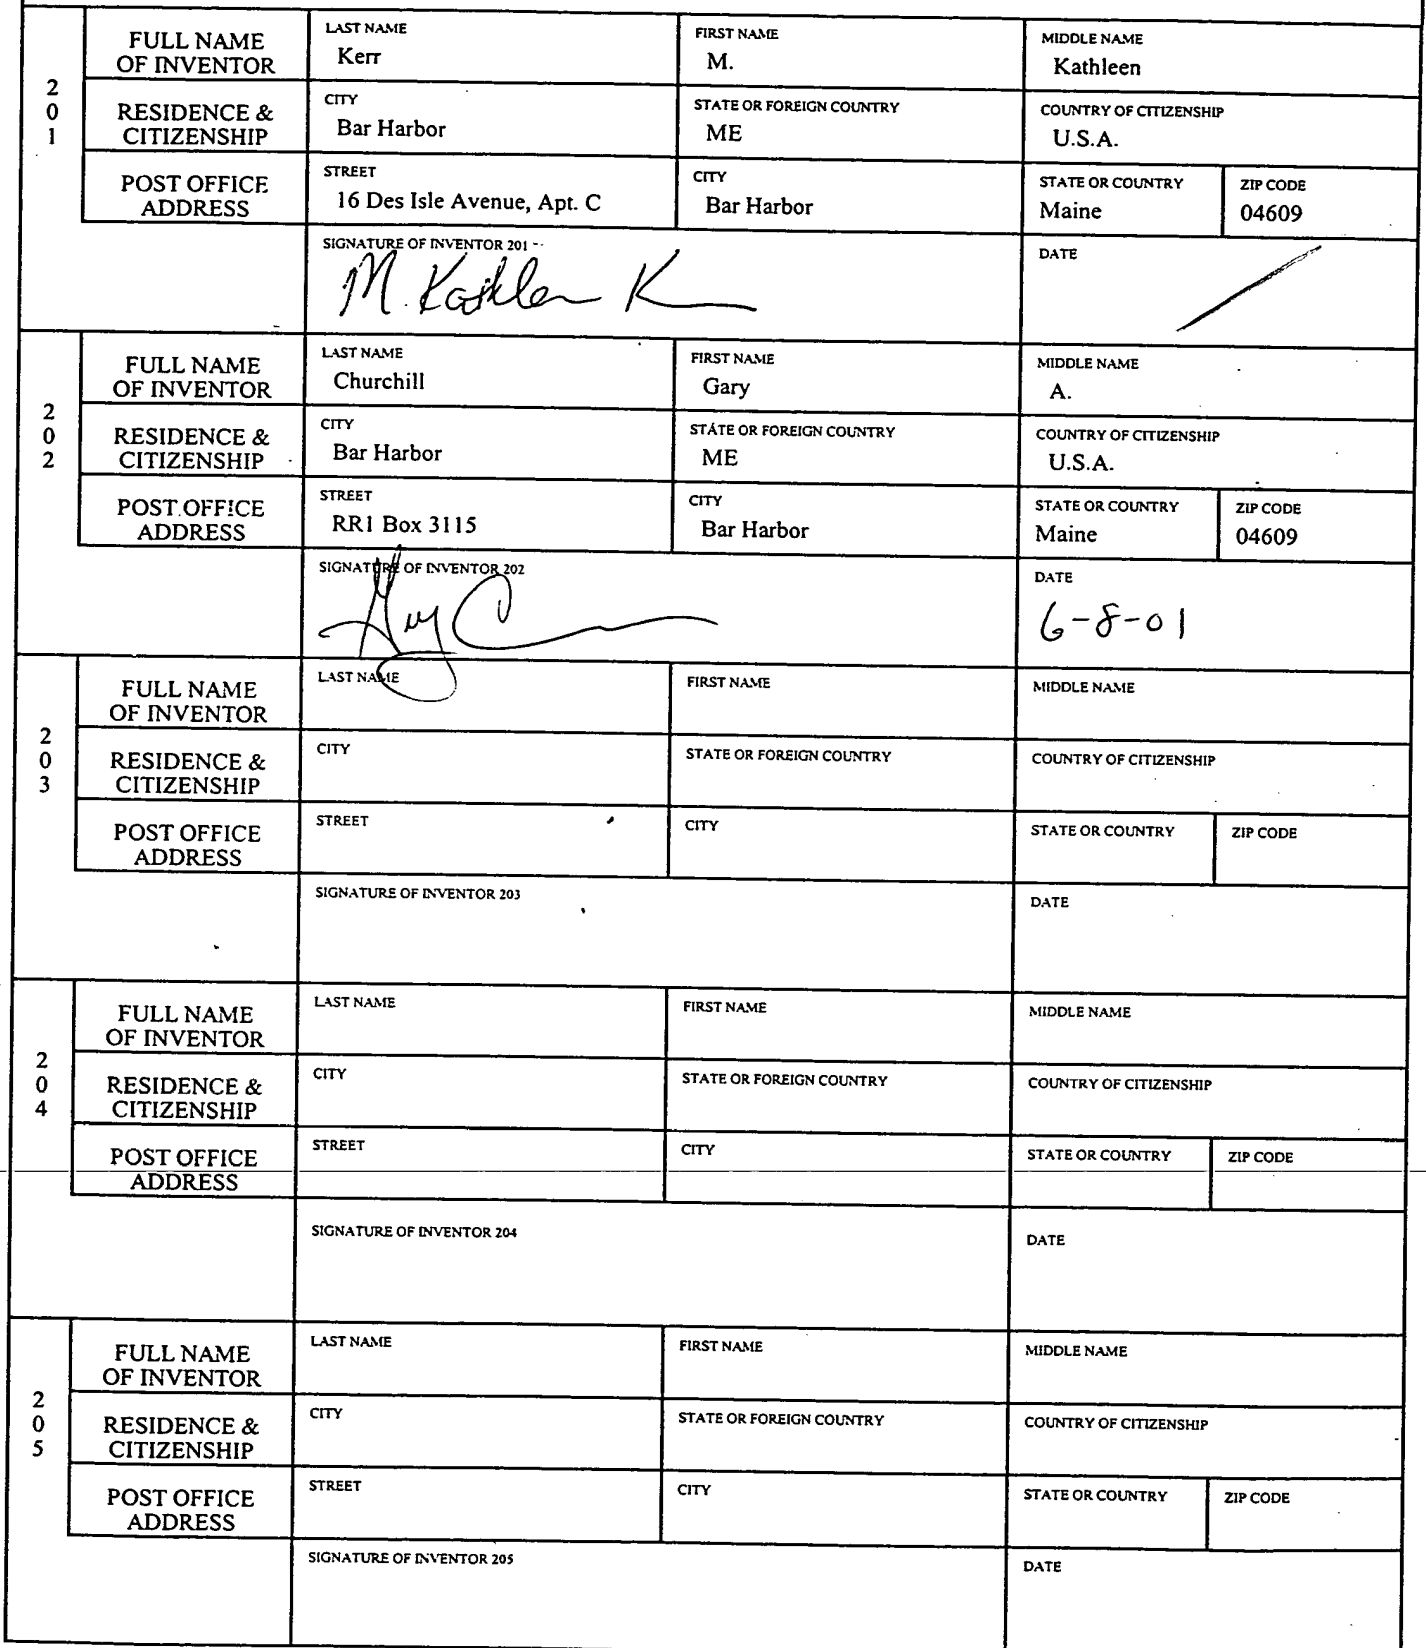 FULL NAME OF INVENTOR
LAST NAME
Kerr
FIRST NAME
M.
MIDDLE NAME
Kathleen
201
RESIDENCE & CITIZENSHIP
CITY
Bar Harbor
STATE OR FOREIGN COUNTRY
ME
COUNTRY OF CITIZENSHIP
U.S.A.
POST OFFICE ADDRESS
STREET
16 Des Isle Avenue, Apt. C
CITY
Bar Harbor
STATE OR COUNTRY
Maine
ZIP CODE
04609
SIGNATURE OF INVENTOR 201
M. Kathleen K
DATE
FULL NAME OF INVENTOR
LAST NAME
Churchill
FIRST NAME
Gary
MIDDLE NAME
A.
202
RESIDENCE & CITIZENSHIP
CITY
Bar Harbor
STATE OR FOREIGN COUNTRY
ME
COUNTRY OF CITIZENSHIP
U.S.A.
POST OFFICE ADDRESS
STREET
RR1 Box 3115
CITY
Bar Harbor
STATE OR COUNTRY
Maine
ZIP CODE
04609
SIGNATURE OF INVENTOR 202
DATE
6-8-01
FULL NAME OF INVENTOR
LAST NAME
FIRST NAME
MIDDLE NAME
203
RESIDENCE & CITIZENSHIP
CITY
STATE OR FOREIGN COUNTRY
COUNTRY OF CITIZENSHIP
POST OFFICE ADDRESS
STREET
CITY
STATE OR COUNTRY
ZIP CODE
SIGNATURE OF INVENTOR 203
DATE
FULL NAME OF INVENTOR
LAST NAME
FIRST NAME
MIDDLE NAME
204
RESIDENCE & CITIZENSHIP
CITY
STATE OR FOREIGN COUNTRY
COUNTRY OF CITIZENSHIP
POST OFFICE ADDRESS
STREET
CITY
STATE OR COUNTRY
ZIP CODE
SIGNATURE OF INVENTOR 204
DATE
FULL NAME OF INVENTOR
LAST NAME
FIRST NAME
MIDDLE NAME
205
RESIDENCE & CITIZENSHIP
CITY
STATE OR FOREIGN COUNTRY
COUNTRY OF CITIZENSHIP
POST OFFICE ADDRESS
STREET
CITY
STATE OR COUNTRY
ZIP CODE
SIGNATURE OF INVENTOR 205
DATE